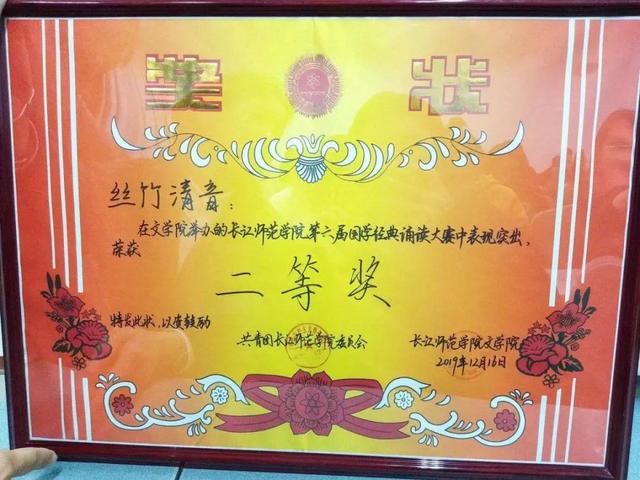 奖 状
丝竹清音：
在文学院举办的长江师范学院第六届国学经典诵读大赛中表现突出，
荣获
二等奖
特发此状，以资鼓励
共青团长江师范学院委员会 长江师范学院文学院
2019年12月16日